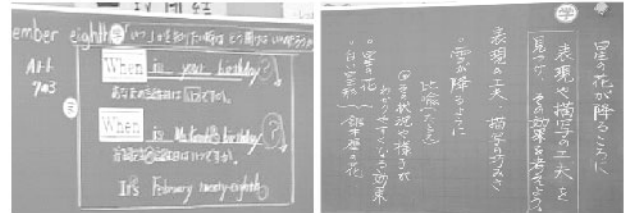 ember eighth
学 「いつ」をたずねる時はどう聞けばいいだろうか
Art
7903
When is your birthday?
あなたの誕生日はいつですか。
When is Ms. Kanda's birthday?
誕生日はいつですか。
It's February twenty-eighth.
学
星の花が降るころに
表現や描写の工夫を
見つけ、その効果を考えよう。
表現の工夫・描写の巧みさ
雪が降るように
比喩(たとえ)
その状況や様子が
わかりやすくなる効果
星の花
白い星形
銀木犀の花